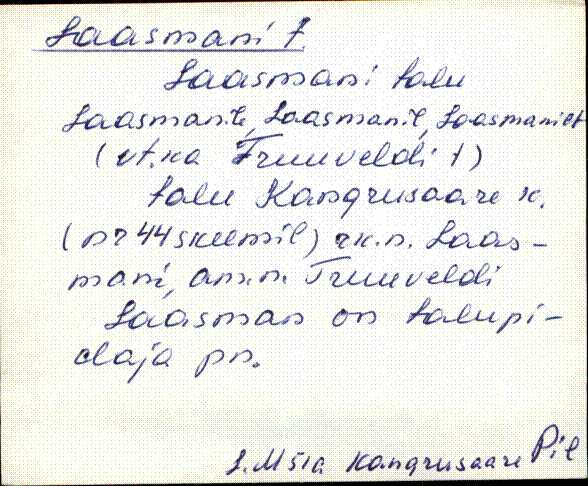 Laasmani t.
Laasmani talu
Laasmanile, Laasmanil, Laasmanilt
(vt. ka Truuveldi t)
talu Kangrusaare k.
(nr 44 skeemil) rk.n. Laas-
mani, am.n. Truuveldi
Laasman on talupi-
daja pn.
Kangrusaare Pil